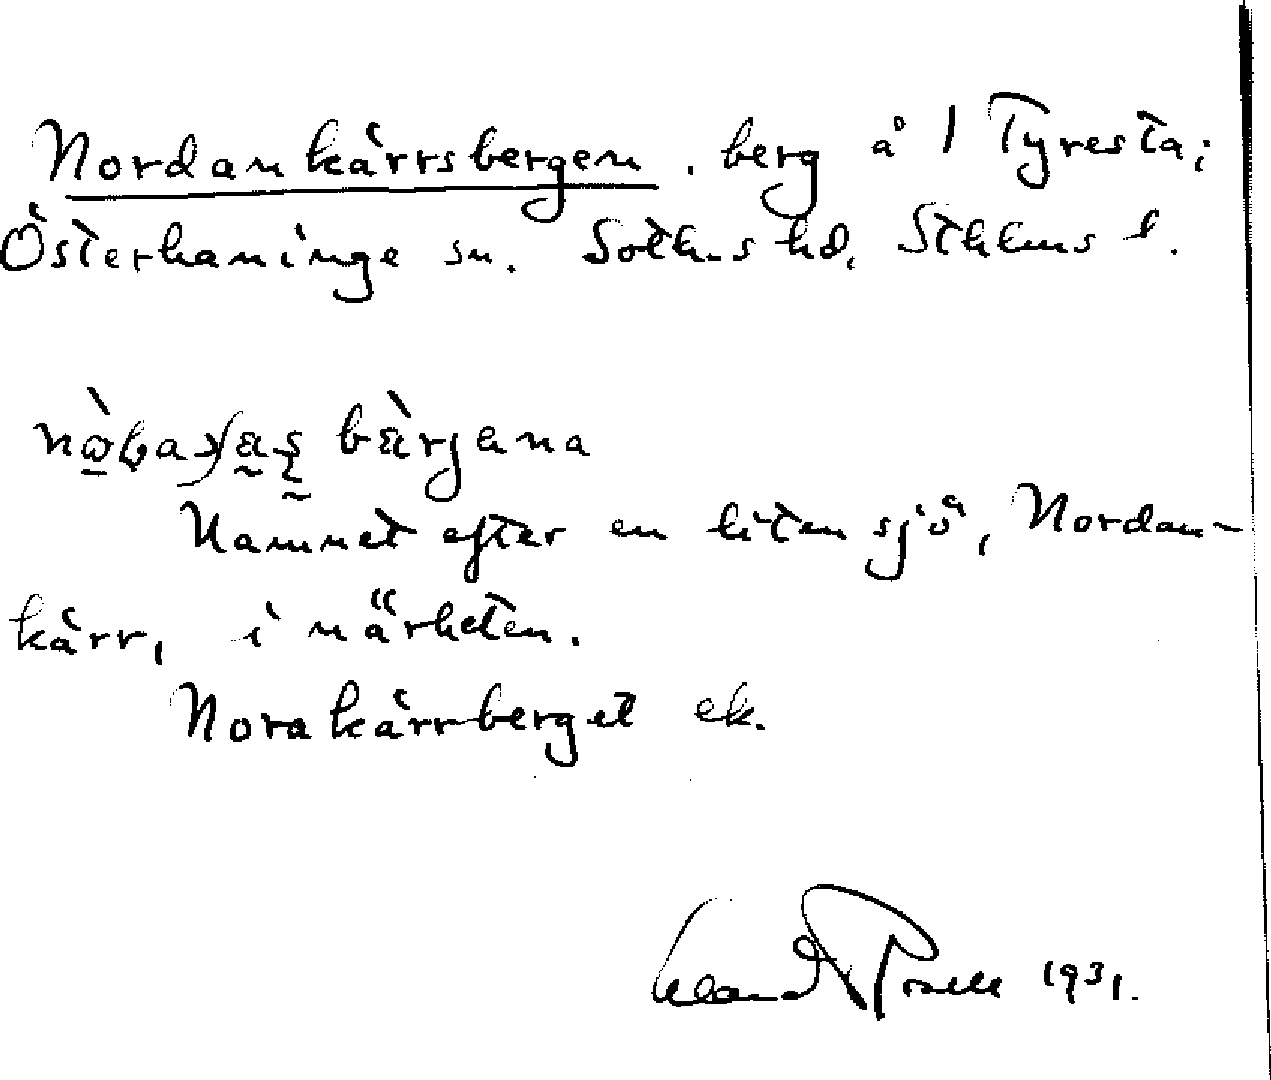 Nordankärrsbergen. berg å 1 Tyresta;
Österhaninge sn. Soth.s hd. Sthlms l.
bärjana
Namnet efter en liten sjö, Nordan-
kärr, i närheten.
Norakärrberget ek.
1931.